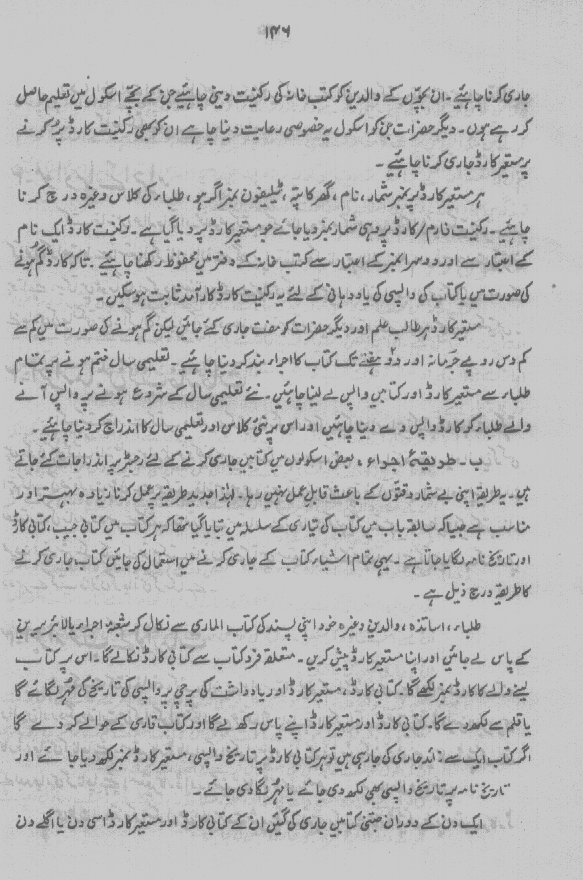 ۱۴۶
جاری کرنا چاہئیے ۔ ان بچوں کے والدین کو کتب خانہ کی رکنیت دینی چاہئیے جن کے بچے اسکول میں تعلیم حاصل
کر رہے ہوں ۔ دیگر حضرات جن کو اسکول یہ خصوصی رعایت دینا چاہے ان کو بھی رکنیت کارڈ پُر کرنے
پر مستعیر کارڈ جاری کرنا چاہئیے ۔
ہر مستعیر کارڈ پر نمبر شمار ، نام ، گھر کا پتہ ، ٹیلیفون نمبر اگر ہو ، طلباء کی کلاس وغیرہ درج کرنا
چاہئیے ۔ رکنیت فارم / کارڈ پر وہی شمار نمبر دیا جائے جو مستعیر کارڈ پر دیا گیا ہے ۔ رکنیت کارڈ ایک نام
کے اعتبار سے اور دوسرا نمبر کے اعتبار سے کتب خانہ کے دفتر میں محفوظ رکھنا چاہئیے ۔ تاکہ کارڈ گم ہونے
کی صورت میں یا کتاب کی واپسی کی یاد دہانی کے لئے یہ رکنیت کارڈ کار آمد ثابت ہو سکیں ۔
مستعیر کارڈ ہر طالب علم اور دیگر حضرات کو مفت جاری کئے جائیں لیکن گم ہونے کی صورت میں کم سے
کم دس روپے جرمانہ اور دو ہفتے تک کتاب کا اجراء بند کر دینا چاہئیے ۔ تعلیمی سال ختم ہونے پر تمام
طلباء سے مستعیر کارڈ اور کتابیں واپس لے لینا چاہئیں ۔ نئے تعلیمی سال کے شروع ہونے پر واپس آنے
والے طلباء کو کارڈ واپس دے دینا چاہئیں اور اس پر نئی کلاس اور تعلیمی سال کا اندراج کر دینا چاہئیے ۔
ب ۔ طریقۂ اجراء ، بعض اسکولوں میں کتابیں جاری کرنے کے لئے رجسٹر پر اندراجات کئے جاتے
ہیں ۔ یہ طریقہ اپنی بے شمار دقتوں کے باعث قابل عمل نہیں رہا ۔ لہٰذا جدید طریقہ پر عمل کرنا زیادہ بہتر اور
مناسب ہے جیسا کہ سابقہ باب میں کتاب کی تیاری کے سلسلہ میں بتایا گیا تھا کہ ہر کتاب میں کتابی جیب ، کتابی کارڈ
اور تاریخ نامہ لگایا جاتا ہے ۔ یہی تمام اشیاء کتاب کے جاری کرنے میں استعمال کی جائیں کتاب جاری کرنے
کا طریقہ درج ذیل ہے ۔
طلباء ، اساتذہ ، والدین وغیرہ خود اپنی پسند کی کتاب الماری سے نکال کر شعبۂ اجراء یا لائبریرین
کے پاس لے جائیں اور اپنا مستعیر کارڈ پیش کریں ۔ متعلقہ فرد کتاب سے کتابی کارڈ نکالے گا ۔ اس پر کتاب
لینے والے کا کارڈ نمبر لکھے گا ۔ کتابی کارڈ ، مستعیر کارڈ اور یادداشت کی پرچی پر واپسی کی تاریخ کی مُہر لگائے گا
یا قلم سے لکھ دے گا ۔ کتابی کارڈ اور مستعیر کارڈ اپنے پاس رکھ لے گا اور کتاب قاری کے حوالے کر دے گا
اگر کتاب ایک سے زائد جاری کی جا رہی ہیں تو ہر کتابی کارڈ پر تاریخ واپسی ، مستعیر کارڈ نمبر لکھ دیا جائے اور
تاریخ نامہ پر تاریخ واپسی بھی لکھ دی جائے یا مُہر لگا دی جائے ۔
ایک دن کے دوران جتنی کتابیں جاری کی گئیں ان کے کتابی کارڈ اور مستعیر کارڈ اسی دن یا اگلے دن